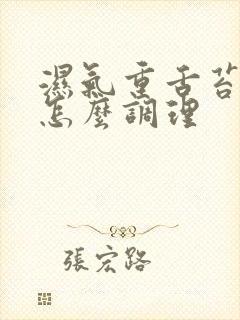 濕氣重舌苔
怎麼調理
張宏路